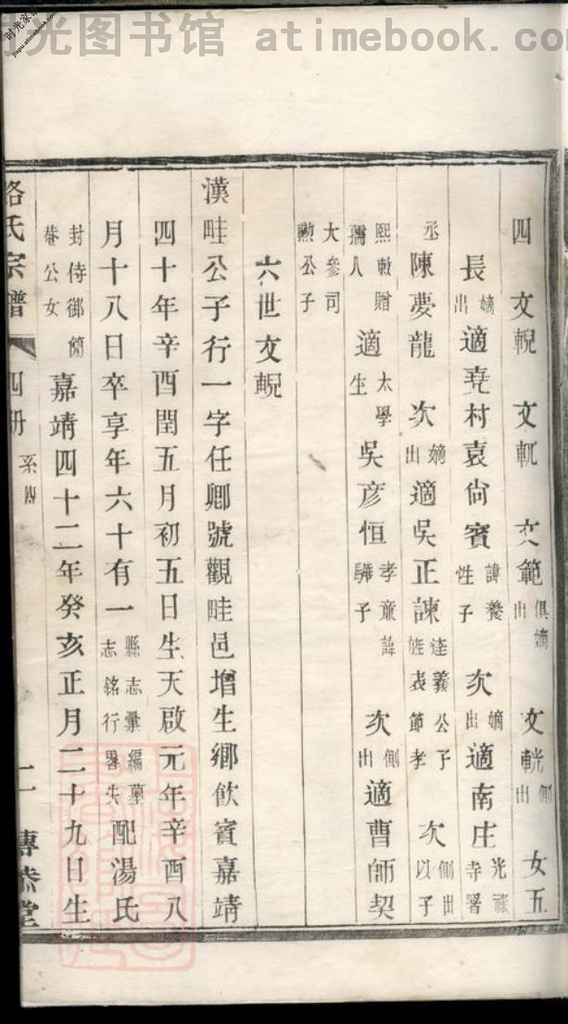 时光图书馆 atimebook.com
四 文輗 文軏 文範 俱嫡出 文軦 側出 女五
長 嫡出 適堯村袁尙賓 諱養性子 次 嫡出 適南庄 光祿寺署
丞 陳夢龍 次 嫡出 適吳正諫 達義公子旌表節孝 次 側出以子
熙載贈孺人 適 太學生 吳彦恒 孝童諱驊子 次 側出 適曹師契
大參司勲公子
六世文輗
漢畦公子行一字任卿號觀畦邑增生鄉飲賓嘉靖
四十年辛酉閏五月初五日生天啟元年辛酉八
月十八日卒享年六十有一 縣志彙編墓志銘行畧失 配湯氏
封侍御簡菴公女 嘉靖四十二年癸亥正月二十九日生
路氏宗譜 四册 系四 二 傳恭堂